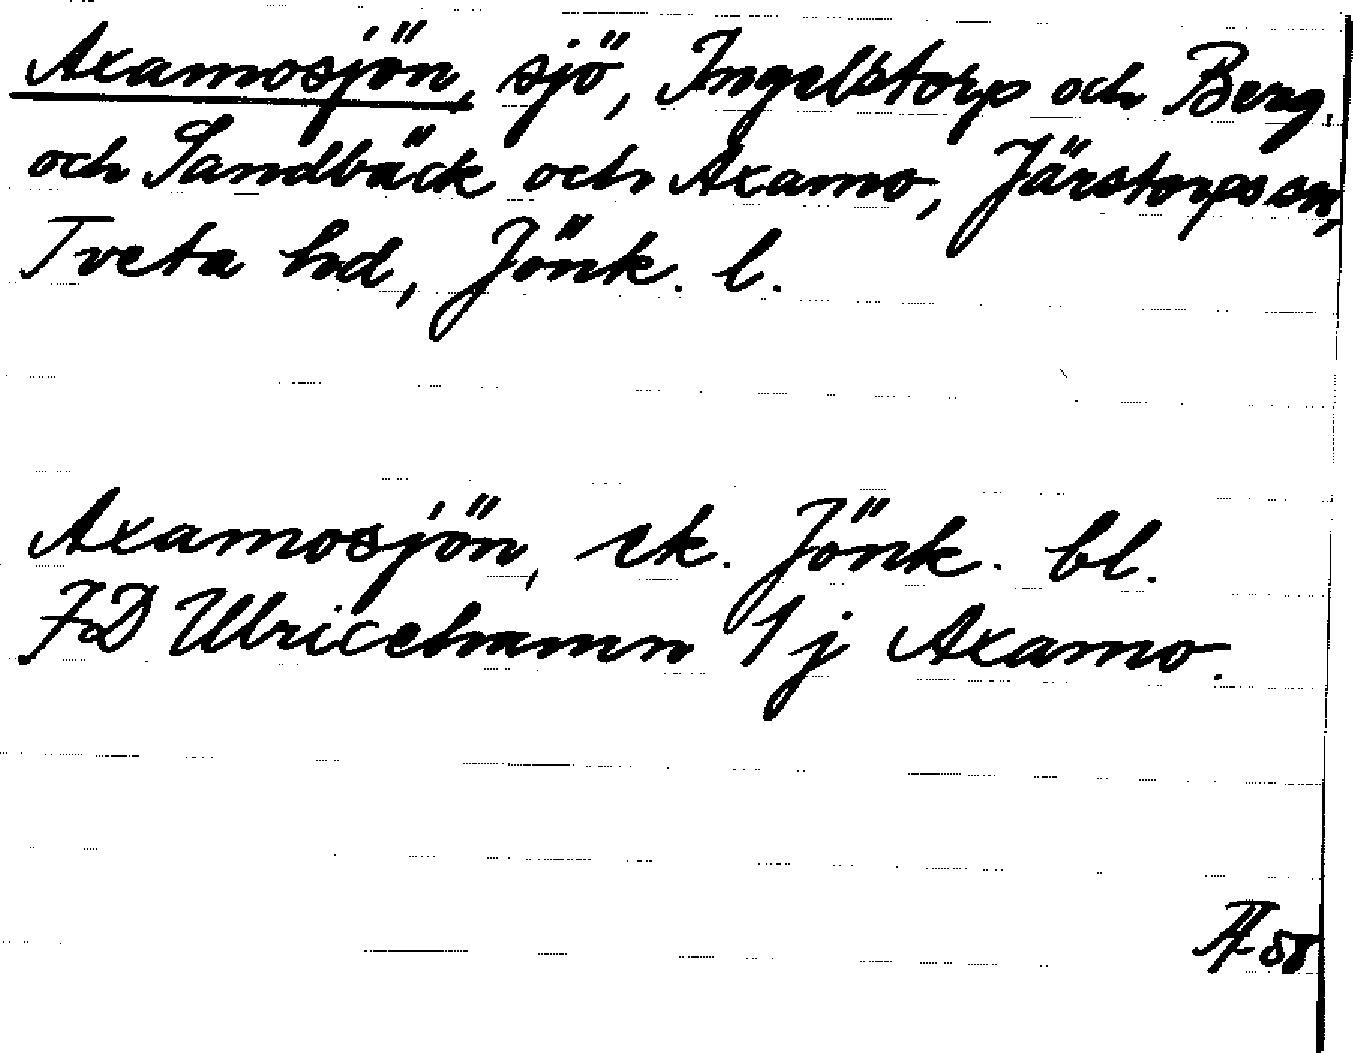 Axamosjön, sjö, Ingelstorp och Berg,
och Sandbäck och Axamo, Järstorps sn,
Tveta hd, Jönk. l.
Axamosjön, ek. Jönk. bl.
JD Ulricehamn 1j Axamo.